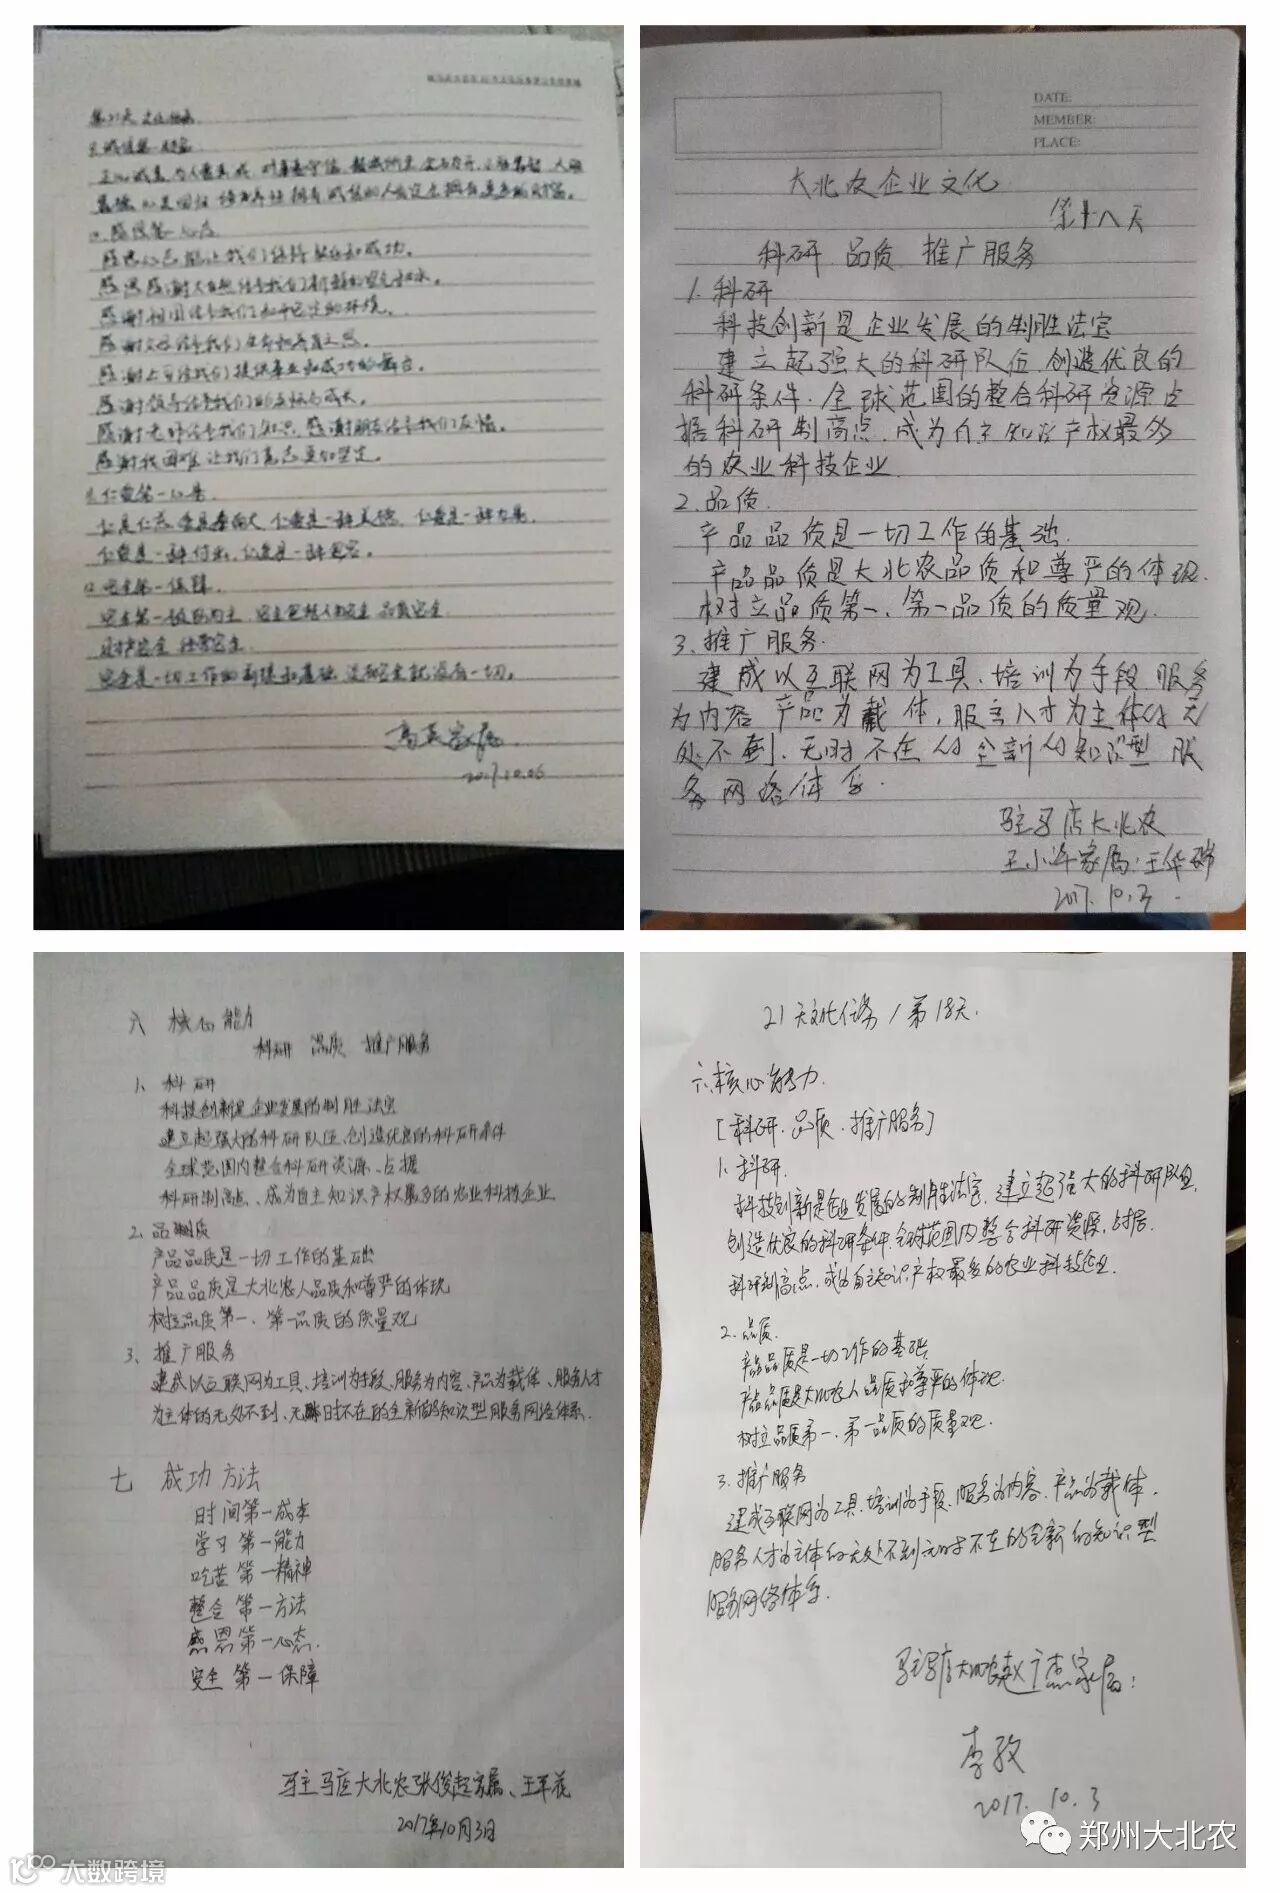 第21天 文化任务
正心诚意
感恩第一心态
感恩心态能让我们保持
感谢祖国给予我们和平安定的环境。
感谢父母给予我们生命和养育之恩。
感谢公司给我们提供事业和成功的舞台。
感谢领导给予我们的关怀与成长。
感谢老师给予我们知识,感谢朋友给予我们友情。
感谢困难让我们意志更加坚定。
仁爱是一种美德,仁爱是一种力量,
仁爱是一种付出,仁爱是一种宽容。
安全第一保障
安全是一切工作的前提和基础,没有安全就没有一切。
2017.10.06
DATE:
MEMBER:
PLACE:
大北农企业文化
第十八天
科研 品质 推广服务
1. 科研
科技创新是企业发展的制胜法宝
建立起强大的科研队伍,创造优良的
科研条件.全球范围的整合科研资源占
据科研制高点.成为自主知识产权最多
的农业科技企业.
2. 品质.
产品品质是一切工作的基础.
产品品质是大北农品质和尊严的体现.
树立品质第一、第一品质的质量观.
3. 推广服务.
建成以互联网为工具、培训为手段 服务
为内容 产品为载体,服务人才为主体的无
处不到、无时不在的全新的知识型 服
务网络体系.
驻马店大北农
王小军家属:王华瑞
2017.10.3.
六 核心能力
科研 品质 推广服务
1、科研
科技创新是企业发展的制胜法宝
建立起强大的科研队伍,创造优良的科研条件
全球范围内整合科研资源、占据
科研制高点、成为自主知识产权最多的农业科技企业.
2、品质
产品品质是一切工作的基础
产品品质是大北农人品质和尊严的体现
树立品质第一、第一品质的质量观
3、推广服务
建成以互联网为工具、培训为手段、服务为内容、产品为载体、服务人才
为主体的无处不到、无时不在的全新的知识型服务网络体系.
七 成功方法
时间第一成本
学习第一能力
吃苦第一精神
整合第一方法
感恩第一心态.
安全第一保障
驻马店大北农张俊超家属、王军花
2017年10月3日
21天文化任务/第18天.
六.核心能力.
[科研.品质.推广服务]
1. 科研.
科技创新是企业发展的制胜法宝.建立起强大的科研队伍.
创造优良的科研条件.全球范围内整合科研资源,占据.
科研制高点.成为自主知识产权最多的农业科技企业.
2. 品质.
产品品质是一切工作的基础
产品品质是大北农人品质和尊严的体现.
树立品质第一、第一品质的质量观.
3. 推广服务
建成互联网为工具.培训为手段.服务为内容、产品为载体.
服务人才为主体的无处不到无时不在的全新的知识型
服务网络体系.
驻马店大北农赵广杰家属:
李孜
2017.10.3
郑州大北农
大数跨境